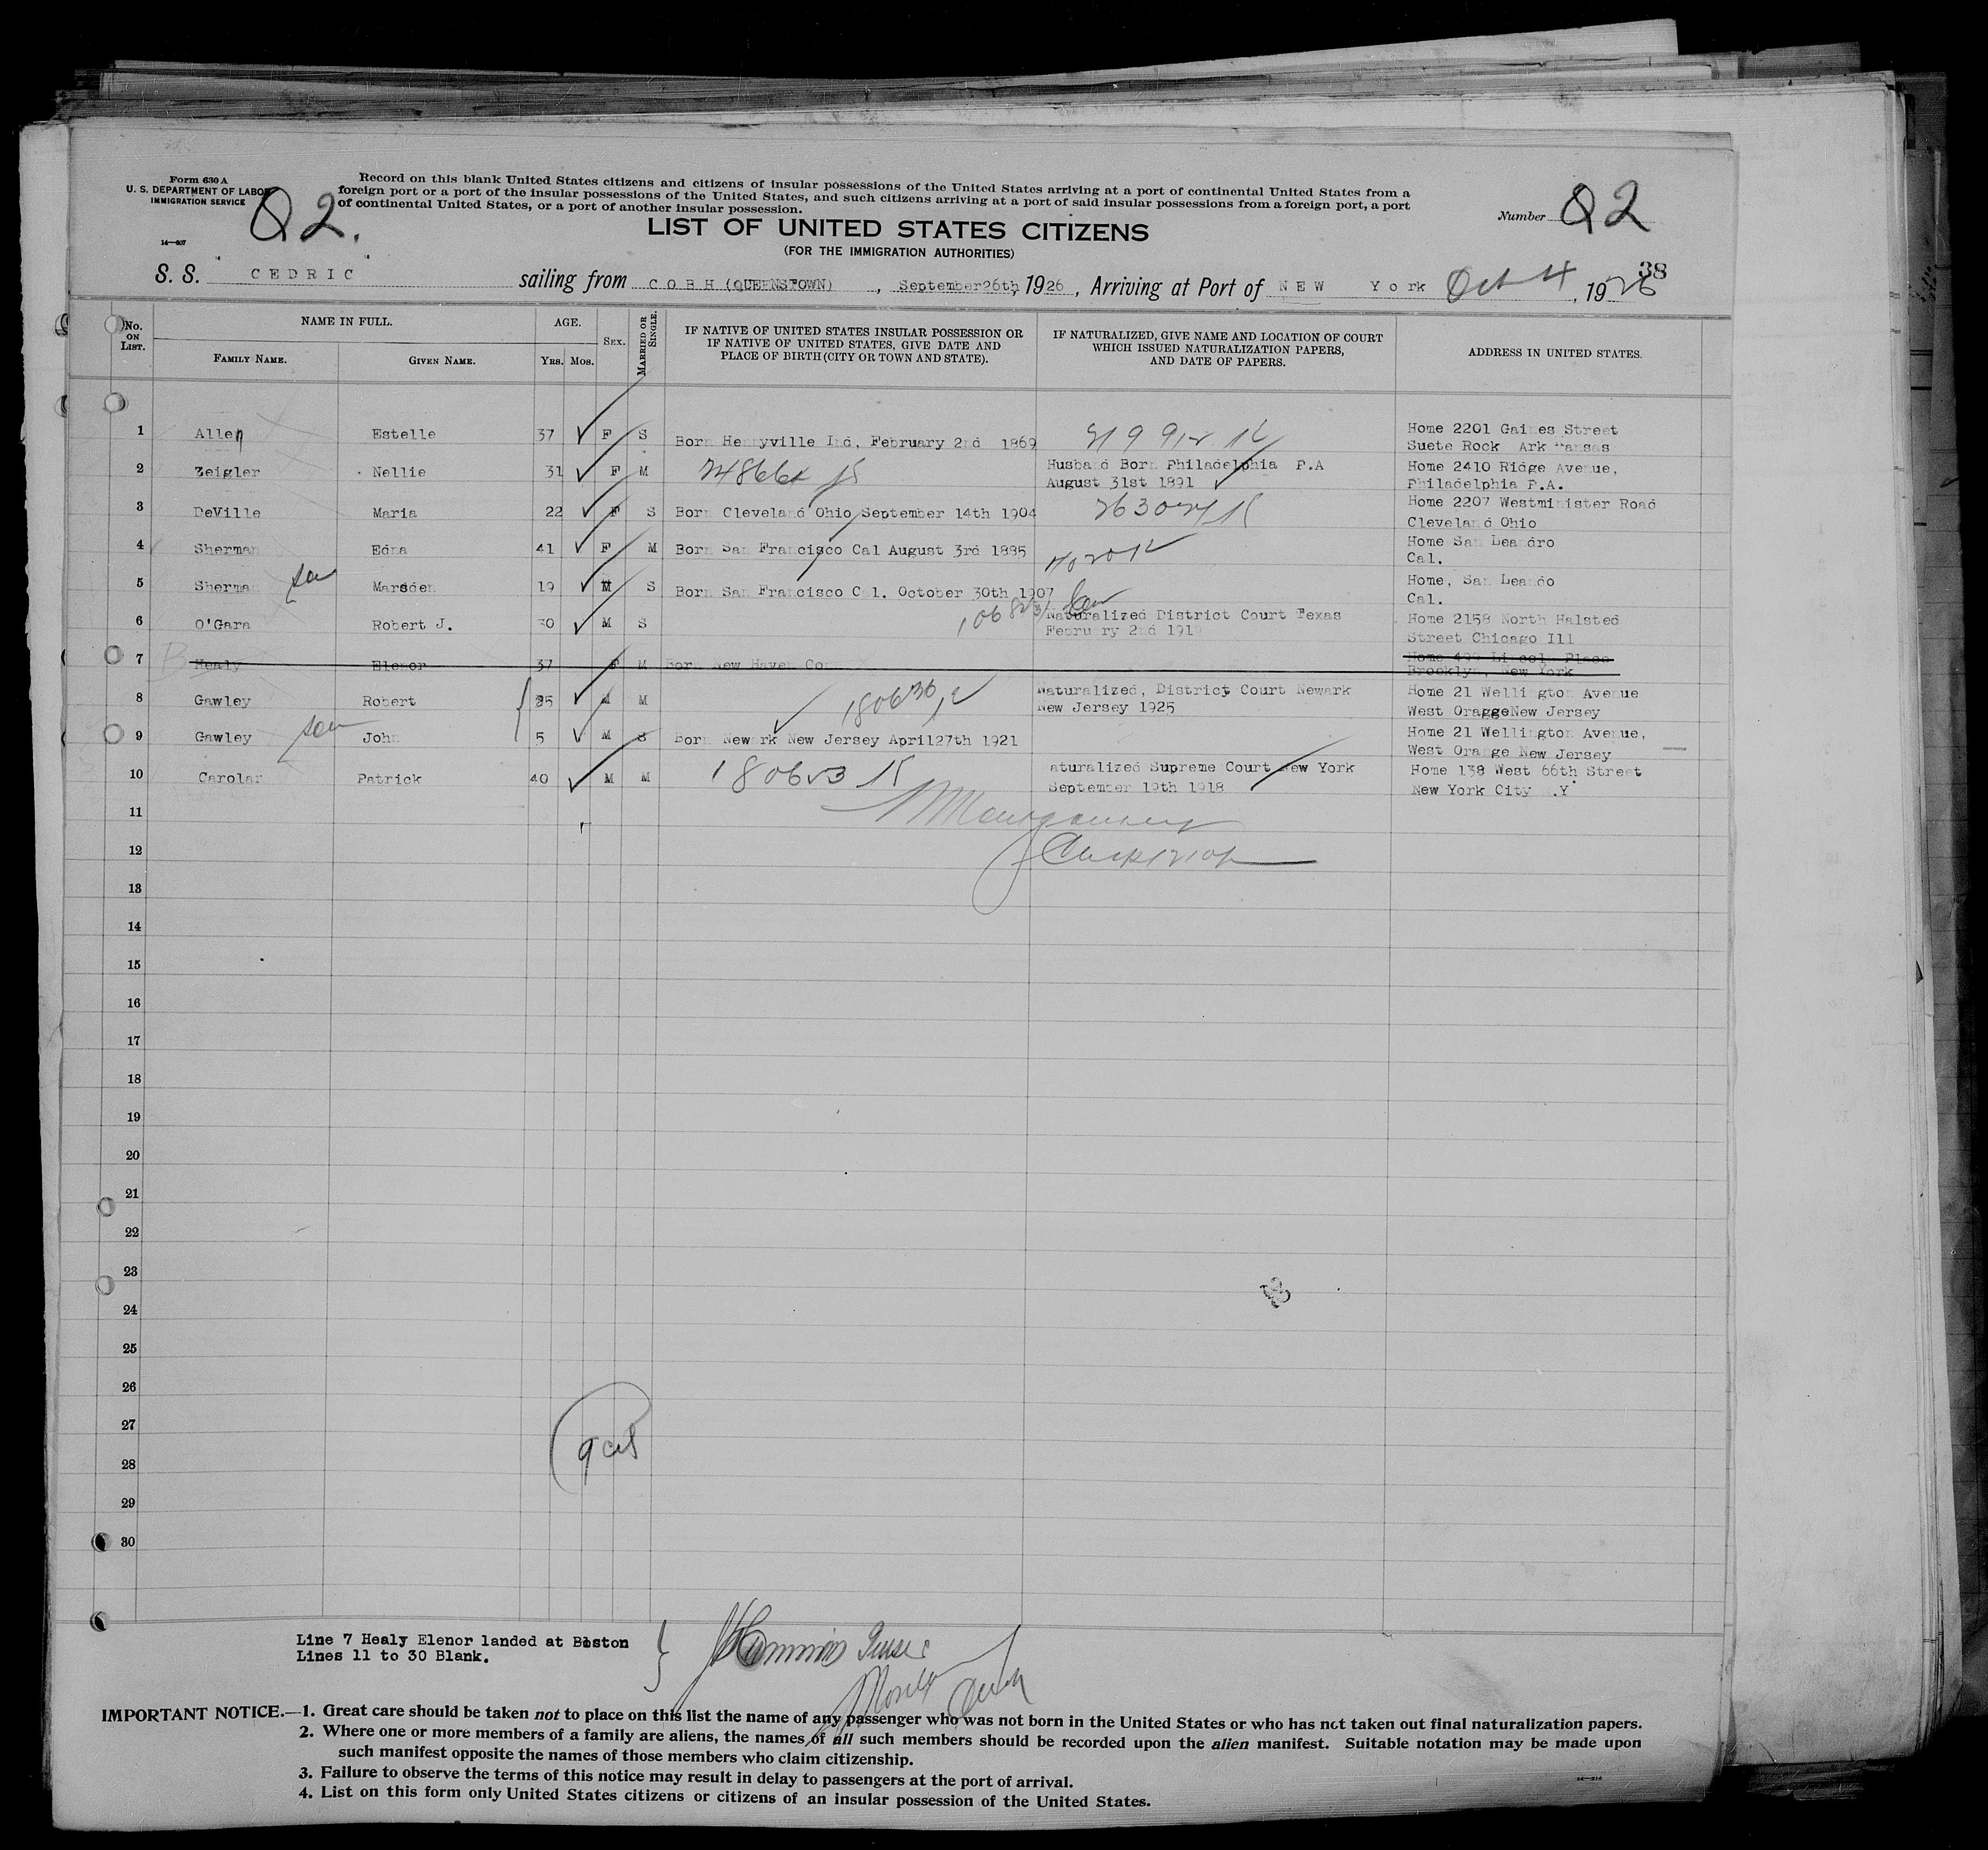 Form 630 A
U. S. DEPARTMENT OF LABOR
IMMIGRATION SERVICE
14—607
Q2.
Record on this blank United States citizens and citizens of insular possessions of the United States arriving at a port of continental United States from a
foreign port or a port of the insular possessions of the United States, and such citizens arriving at a port of said insular possessions from a foreign port, a port
of continental United States, or a port of another insular possession.
LIST OF UNITED STATES CITIZENS
(FOR THE IMMIGRATION AUTHORITIES)
Number Q2
38
S. S. "CEDRIC" sailing from COBH (QUEENSTOWN), September 26th, 1926, Arriving at Port of NEW York Oct 4, 1926
No. ON LIST.
NAME IN FULL.
FAMILY NAME. GIVEN NAME.
AGE.
YRS. MOS.
SEX.
MARRIED OR SINGLE.
IF NATIVE OF UNITED STATES INSULAR POSSESSION OR
IF NATIVE OF UNITED STATES, GIVE DATE AND
PLACE OF BIRTH (CITY OR TOWN AND STATE).
IF NATURALIZED, GIVE NAME AND LOCATION OF COURT
WHICH ISSUED NATURALIZATION PAPERS,
AND DATE OF PAPERS.
ADDRESS IN UNITED STATES.
1 Allen Estelle 37 F S Born Henryville Ind, February 2nd 1869 Home 2201 Gaines Street
Suete Rock Ark ansas
2 Zeigler Nellie 31 F M Husband Born Philadelphia P.A Home 2410 Ridge Avenue,
August 31st 1891 Philadelphia P.A.
3 DeVille Maria 22 F S Born Cleveland Ohio September 14th 1904 Home 2207 Westminister Road
Cleveland Ohio
4 Sherman Edna 41 F M Born San Francisco Cal August 3rd 1885 Home San Leandro
Cal.
5 Sherman son Marsden 19 M S Born San Francisco C l. October 30th 1907 Home, San Leando
Cal.
6 O'Gara Robert J. 30 M S Naturalized District Court Texas Home 2158 North Halsted
February 2nd 191 Street Chicago Ill
7 Healy Elenor 37 F M Born New Haven Con Home 499 Lincoln Place
Brooklyn, New York
8 Gawley Robert 35 M M Naturalized, District Court Newark Home 21 Wellington Avenue
New Jersey 1925 West Oragge New Jersey
9 Gawley son John 5 M S Born Newark New Jersey April 27th 1921 Home 21 Wellington Avenue,
West Orange New Jersey
10 Carolan Patrick 40 M M aturalized Supreme Court New York Home 138 West 66th Street
September 19th 1918 New York City .Y
11
12
13
14
15
16
17
18
19
20
21
22
23
24
25
26
27
28
29
30
Line 7 Healy Elenor landed at Boston
Lines 11 to 30 Blank.
IMPORTANT NOTICE.—1. Great care should be taken not to place on this list the name of any passenger who was not born in the United States or who has not taken out final naturalization papers.
2. Where one or more members of a family are aliens, the names of all such members should be recorded upon the alien manifest. Suitable notation may be made upon
such manifest opposite the names of those members who claim citizenship.
3. Failure to observe the terms of this notice may result in delay to passengers at the port of arrival.
4. List on this form only United States citizens or citizens of an insular possession of the United States.